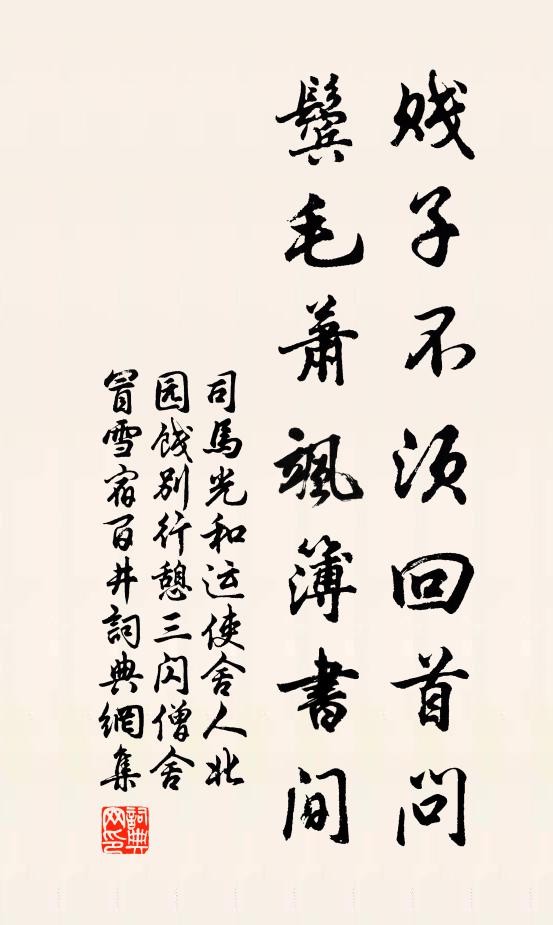 贱子不须回首问
鬓毛蕭飒簿書间
司馬光和运使舍人北
园饯别行憩三闪僧舍
冒雪宿百井詞典網集
詞典
网印